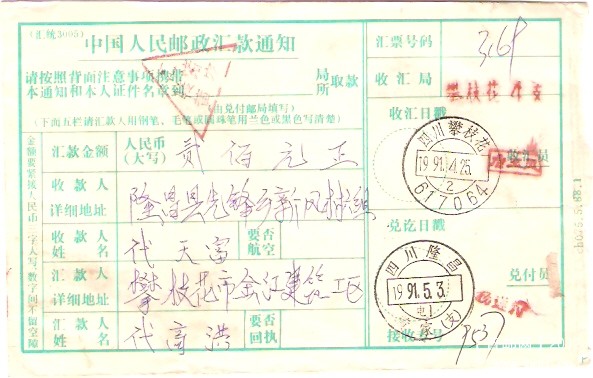 (汇统3005)
中国人民邮政汇款通知
请按照背面注意事项携带
本通知和本人证件名章到 局所 取款
(由兑付邮局填写)
(下面五栏请汇款人用钢笔、毛笔或圆珠笔用兰色或黑色写清楚)
汇款金额 人民币(大写) 贰佰元正
收款人详细地址 隆昌县先锋 新风 组
收款人姓名 代天富 要否航空
汇款人详细地址 攀枝花市金江建筑工区
汇款人姓名 代高洪 要否回执
汇票号码 3169
收汇局 攀枝花 支
收汇日戳
四川攀枝花
1991.4.25
2
617064
收汇员
兑讫日戳
四川隆昌
1991.5.3
电1
家支
兑付员
接收 号 9537
金额要紧接人民币一字大写,数字间不留空隙